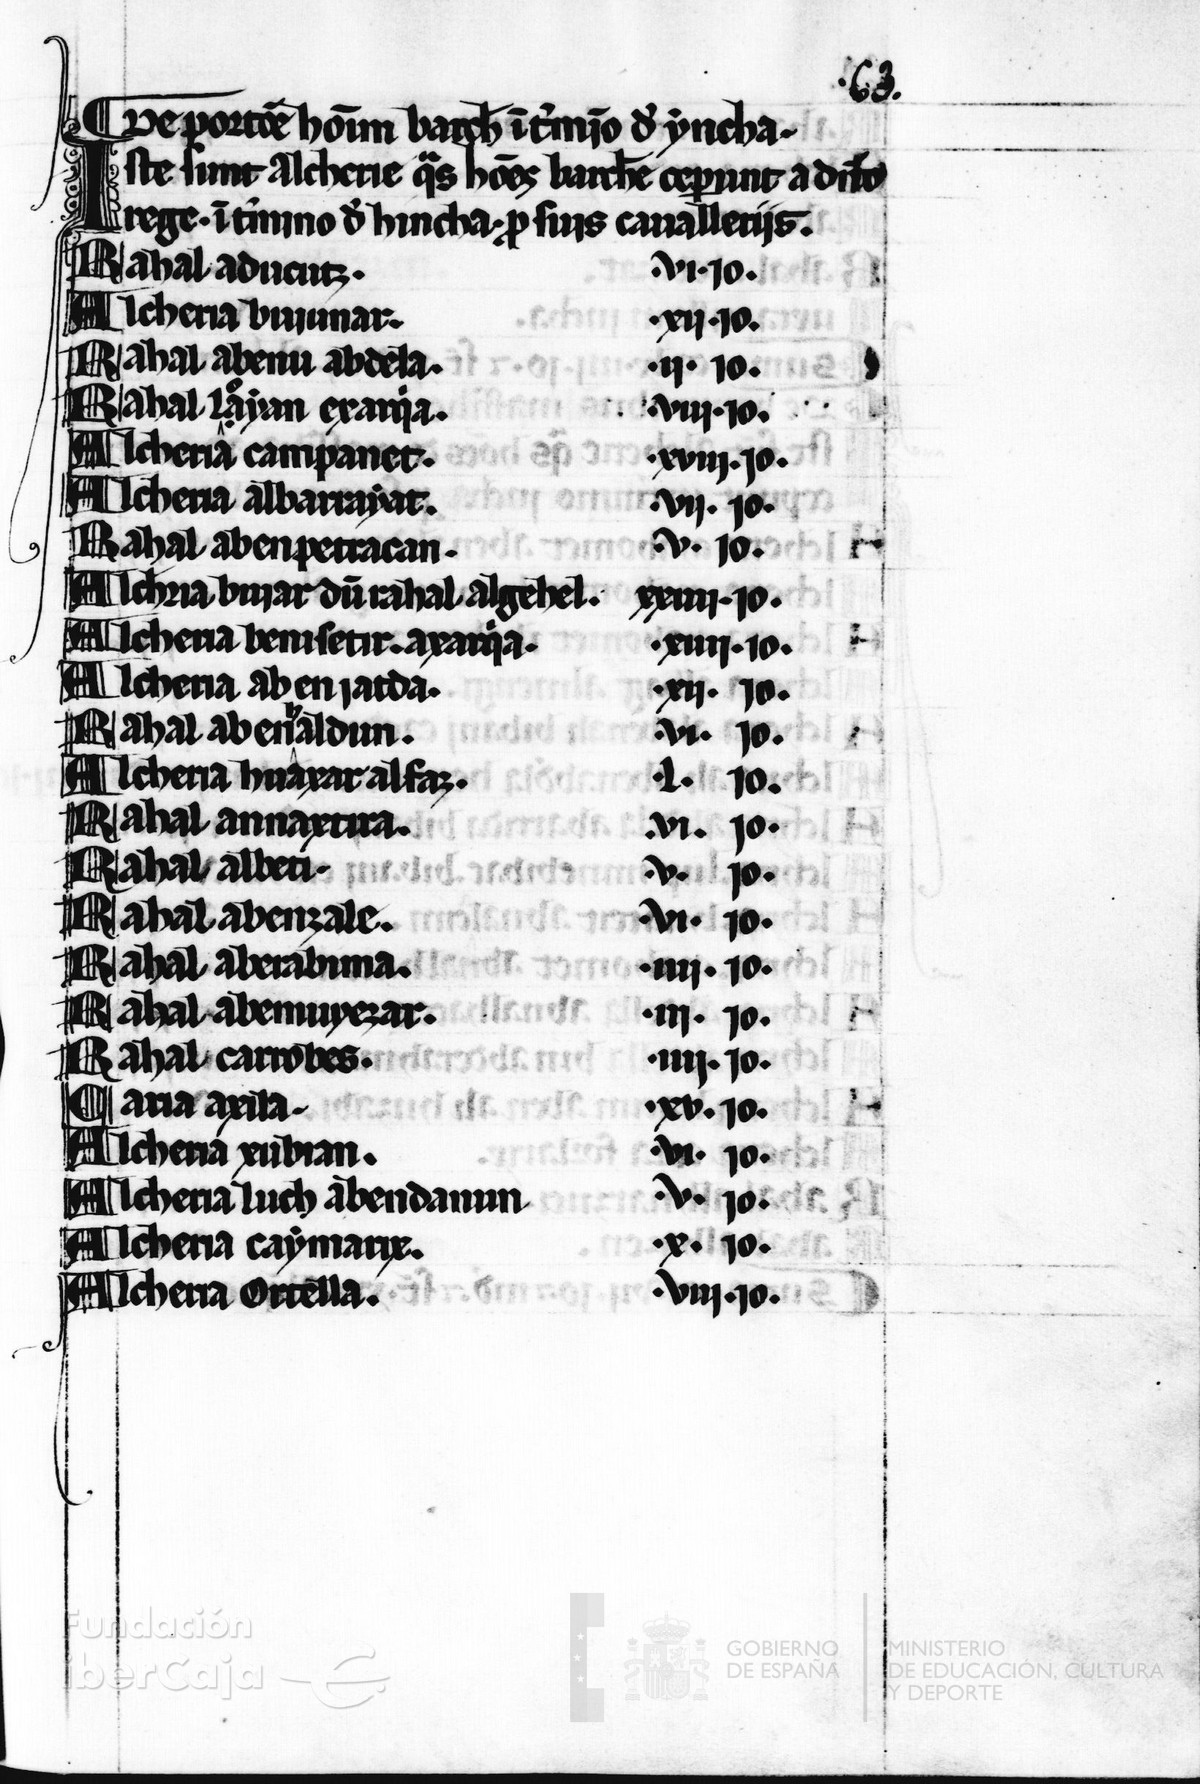 ·63.
De portõe hoĩm barch̃ ĩ t'mĩo d' ẏncha-
Iste sunt alcherie q̃s hoẽs barchñe ceperunt a dicto
rege· ĩ t'mino d' hincha· ꝓ suis cauallerijs.
Rahal aducutz. ·vi·jo.
Alcheria buiunar. ·xij·jo.
Rahal abenu abdela. ·ij· jo.
Rahal laẏan exarq̃a. ·viii·jo.
Alcheria campanet. ·xviij·jo.
Alcheria albarraẏat. ·vij. jo.
Rahal abenpetracan. ·v· jo.
Alch'ria buiar dũ rahal algehel. xxiiij·jo.
Alcheria benisetir. axarq̃a. ·xiiij·jo.
Alcheria abenjatda. ·xij. jo.
Rahal abenhaldun. ·vi· jo.
Alcheria huaxar alfaz. ·l· jo.
Rahal annaxtira. ·vi. jo.
Rahal albeti. ·v· jo.
Rahal abenzale. ·vi· jo.
Rahal aberabinna. ·iiij· jo.
Rahal abemuyezar. ·iij· jo.
Rahal carrobes. ·iiij· jo.
Caria axita- ·xv· jo.
Alcheria xubian. ·vi· jo.
Alcheria luch abendanun ·v· jo.
Alcheria caẏmarix. ·x· jo.
Alcheria Ortella. ·viii·jo.
Fundación
iberCaja
GOBIERNO
DE ESPAÑA
MINISTERIO
DE EDUCACIÓN, CULTURA
Y DEPORTE